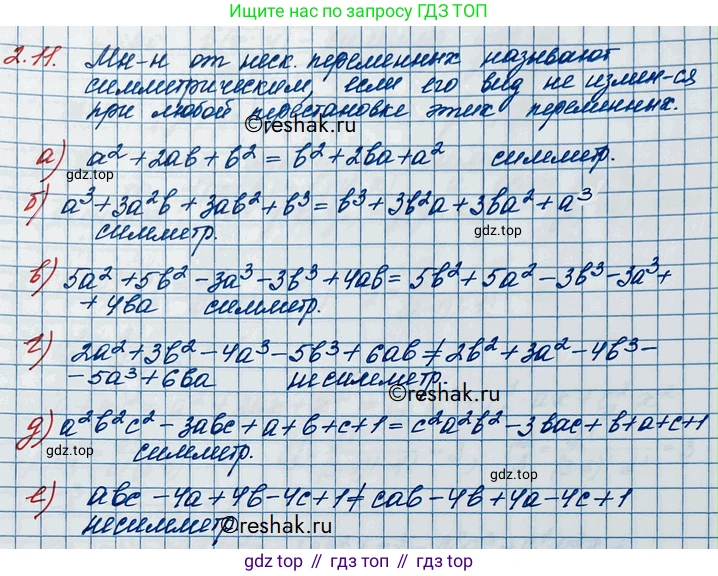 Ищите нас по запросу ГДЗ ТОП
2.11. Мн-н от неск. переменных называют
симметрическим, если его вид не измен-ся
при любой перестановке этих переменных.
©reshak.ru
а) a² + 2ab + b² = b² + 2ba + a² симметр.
gdz.top
б) a³ + 3a²b + 3ab² + b³ = b³ + 3b²a + 3ba² + a³
симметр.
gdz.top
в) 5a² + 5b² - 3a³ - 3b³ + 4ab = 5b² + 5a² - 3b³ - 3a³ +
+ 4ba симметр.
г) 2a² + 3b² - 4a³ - 5b³ + 6ab ≠ 2b² + 3a² - 4b³ -
- 5a³ + 6ba несимметр.
©reshak.ru
д) a²b²c² - 3abc + a + b + c + 1 = c²a²b² - 3bac + b + a + c + 1
gdz.top
симметр.
gdz.top
е) abc - 4a + 4b - 4c + 1 ≠ cab - 4b + 4a - 4c + 1
несимметр.
©reshak.ru
gdz top // гдз топ // gdz.top